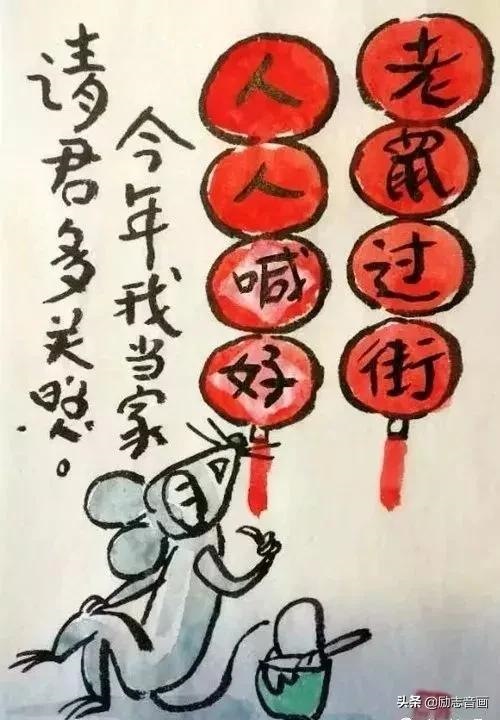 老鼠过街
人人喊好
今年我当家
请君多关照。
头条 @励志音画